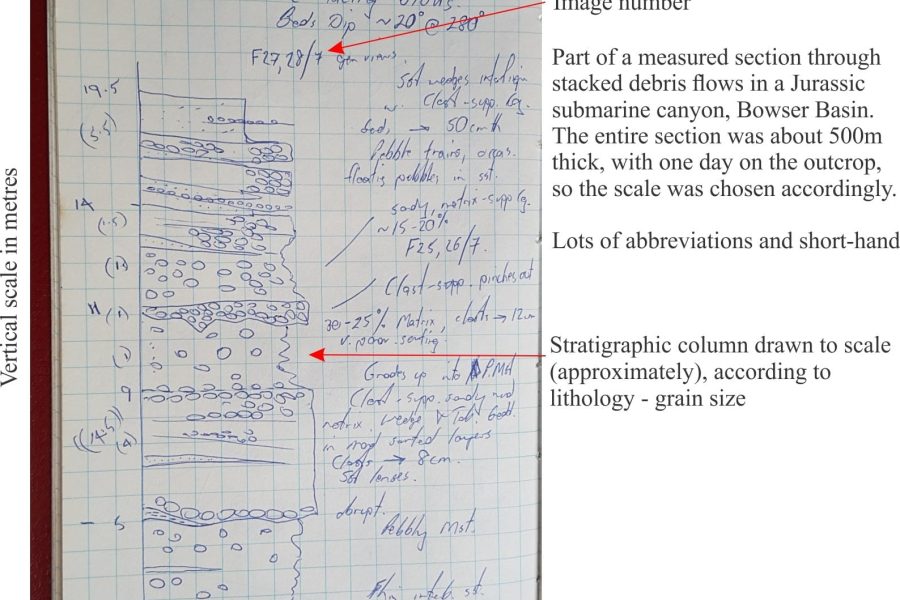 Image number
Beds Dip ~20° @ 280°
F27,28/7 gen views.
Part of a measured section through
stacked debris flows in a Jurassic
submarine canyon, Bowser Basin.
The entire section was about 500m
thick, with one day on the outcrop,
so the scale was chosen accordingly.
Lots of abbreviations and short-hand
Stratigraphic column drawn to scale
(approximately), according to
lithology - grain size
Vertical scale in metres
19.5
(5.5)
14
(1.5)
11
9
(4)
5
Sst wedges
Clast-supp. Cg.
beds → 50cm th
Pebble trains, occas.
floating pebbles in sst.
sandy, matrix-supp Cg.
~15-20%
F25,26/7.
Clast-supp. pinches out
-25% Matrix, clasts → 12cm
v. poor sorting.
Grades up into P.Mst
Clast-supp. sandy mud
matrix. Wedge & Tab. bedd.
in mod sorted layers
Clasts → 8cm.
Sst lenses.
abrupt.
Pebbly Mst.
Thin interb. sst.